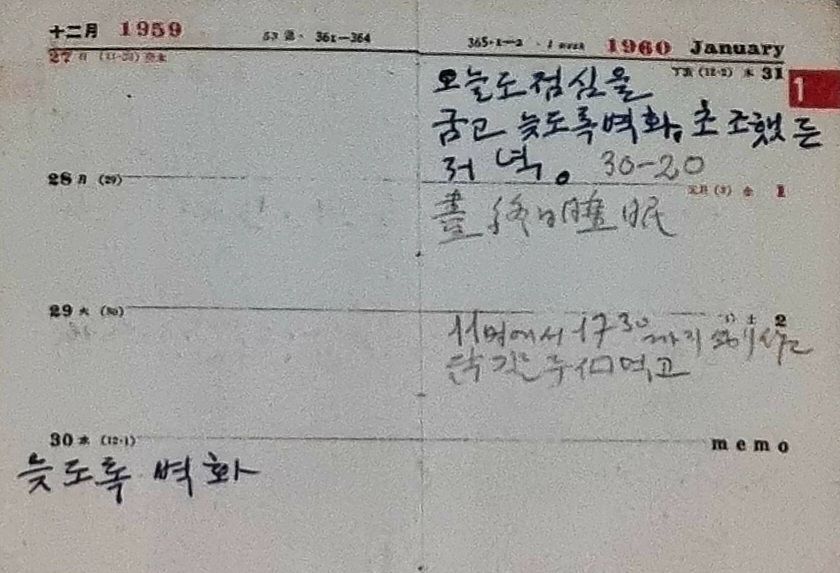 十二月 1959
53 週 · 361—364
27 日
28 月 (29)
29 火 (30)
30 水 (12·1)
늦도록 벽화
365·1—2 · 1 WEEK
1960 January
丁亥 (12·2) 木 31
1
오늘도 점심을
굶고 늦도록 벽화, 초조했든
저녁。 30-20
元月 (3) 金 1
晝 終日 睡眠
土 2
에서 17 30 까지
먹고
memo